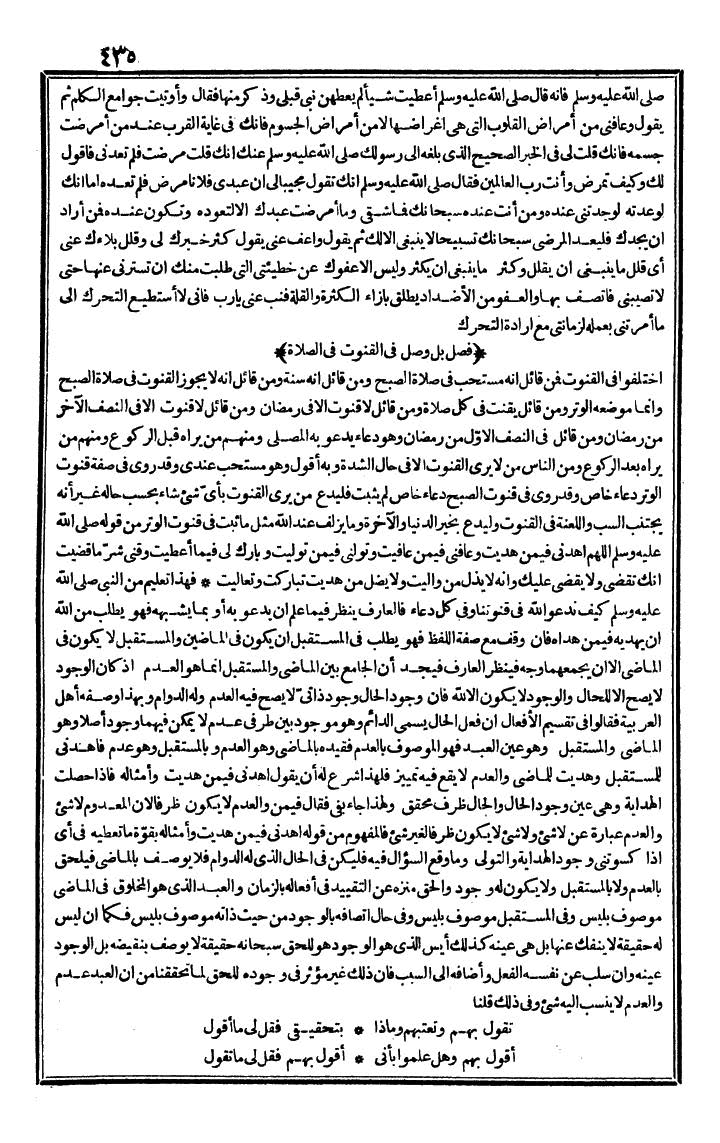 ٤٣٥
صلى الله عليه وسلم فانه قال صلى الله عليه وسلم أعطيت شيأ لم يعطهن نبي قبلى وذكر منها فقال وأوتيت جوامع الكلم ثم
يقول وعافنى من أمراض القلوب التى هى اغراضها لامن أمراض الجسوم فانك فى غاية القرب عند من أمرضت
جسمه فانك قلت لى فى الخبر الصحيح الذى بلغه الى رسولك صلى الله عليه وسلم عنك انك قلت مرضت فلم تعدنى فاقول
لك وكيف تمرض وأنت رب العالمين فقال صلى الله عليه وسلم انك تقول مجيبا لى ان عبدى فلانا مرض فلم تعده اما انك
لو عدته لوجدتنى عنده ومن أنت عنده سبحانك فاشقى وما أمرضت عبدك الا لتعوده وتكون عنده فمن أراد
ان يجدك فليعد المرضى سبحانك تسبيحا لا ينبغى الا لك ثم يقول واعف عنى يقول كثر خيرك لى وقلل بلاءك عنى
أى قلل ما ينبغى ان يقلل وكثر ما ينبغى ان يكثر وليس الا عفوك عن خطيئتى التى طلبت منك ان تسترنى عنها حتى
لا تصيبنى فاتصف بها والعفو من الأضداد يطلق بازاء الكثرة والقلة فنب عنى يارب فانى لا أستطيع التحرك الى
ما أمرتنى بعمله لزمانتى مع ارادة التحرك
﴿فصل بل وصل فى القنوت فى الصلاة﴾
اختلفوا فى القنوت فمن قائل انه مستحب فى صلاة الصبح ومن قائل انه سنة ومن قائل انه لا يجوز القنوت فى صلاة الصبح
وانما موضعه الوتر ومن قائل يقنت فى كل صلاة ومن قائل لا قنوت الا فى رمضان ومن قائل لا قنوت الا فى النصف الآخر
من رمضان ومن قائل فى النصف الاوّل من رمضان وهو دعاء يدعو به المصلى ومنهم من يراه قبل الركوع ومنهم من
يراه بعد الركوع ومن الناس من لا يرى القنوت الا فى حال الشدة وبه أقول وهو مستحب عندى وقد روى فى صفة قنوت
الوتر دعاء خاص وقد روى فى قنوت الصبح دعاء خاص لم يثبت فليدع من يرى القنوت بأىّ شئ شاء بحسب حاله غير أنه
يجتنب السب واللعنة فى القنوت وليدع بخير الدنيا والآخرة وما يزلف عند الله مثل ما ثبت فى قنوت الوتر من قوله صلى الله
عليه وسلم اللهم اهدنى فيمن هديت وعافنى فيمن عافيت وتولنى فيمن توليت وبارك لى فيما أعطيت وقنى شرّ ما قضيت
انك تقضى ولا يقضى عليك وانه لا يذل من واليت ولا يضل من هديت تباركت وتعاليت * فهذا تعليم من النبى صلى الله
عليه وسلم كيف ندعو الله فى قنوتنا وفى كل دعاء فالعارف ينظر فيما علم ان يدعو به أو بما يشبهه فهو يطلب من الله
ان يهديه فيمن هداه فان وقف مع صفة اللفظ فهو يطلب فى المستقبل ان يكون فى الماضين والمستقبل لا يكون فى
الماضى الا ان يجمعهما وجه فينظر العارف فيجد أن الجامع بين الماضى والمستقبل انما هو العدم اذ كان الوجود
لا يصح الا للحال والوجود لا يكون الا لله فان وجود الحال وجود ذاتىّ لا يصح فيه العدم وله الدوام وبهذا وصفه أهل
العربية فقالوا فى تقسيم الأفعال ان فعل الحال يسمى الدائم وهو موجود بين طرفى عدم لا يمكن فيهما وجود أصلا وهو
الماضى والمستقبل وهو عين العبد فهو الموصوف بالعدم فقيده بالماضى وهو العدم وبالمستقبل وهو عدم فاهدنى
للمستقبل وهديت للماضى والعدم لا يقع فيه تمييز فلهذا شرع له أن يقول اهدنى فيمن هديت وأمثاله فاذا حصلت
الهداية وهى عين وجود الحال والحال ظرف محقق ولهذا جاء بفى فقال فيمن والعدم لا يكون ظرفا لان المعدوم لا شئ
والعدم عبارة عن لا شئ ولا شئ لا يكون ظرفا لغير شئ فالمفهوم من قوله اهدنى فيمن هديت وأمثاله بقوّة ما تعطيه فى أى
اذا كسوتنى وجود الهداية والتولى وما وقع السؤال فيه فليكن فى الحال الذى له الدوام فلا يوصف بالماضى فيلحق
بالعدم ولا بالمستقبل ولا يكون له وجود والحق منزه عن التقييد فى أفعاله بالزمان والعبد الذى هو المخلوق فى الماضى
موصوف بليس وفى المستقبل موصوف بليس وفى حال اتصافه بالوجود من حيث ذاته موصوف بليس فكما ان ليس
له حقيقة لا ينفك عنها بل هى عينه كذلك أيس الذى هو الوجود هو للحق سبحانه حقيقة لا يوصف بنقيضه بل الوجود
عينه وان سلب عن نفسه الفعل وأضافه الى السبب فان ذلك غير مؤثر فى وجوده للحق لما تحققنا من ان العبد عدم
والعدم لا ينسب اليه شئ وفى ذلك قلنا
تقول بهم وتعتبهم وماذا * بتحقيقى فقل لى ما أقول
أقول بهم وهل علموا بأنى * أقول بهم فقل لى ما تقول